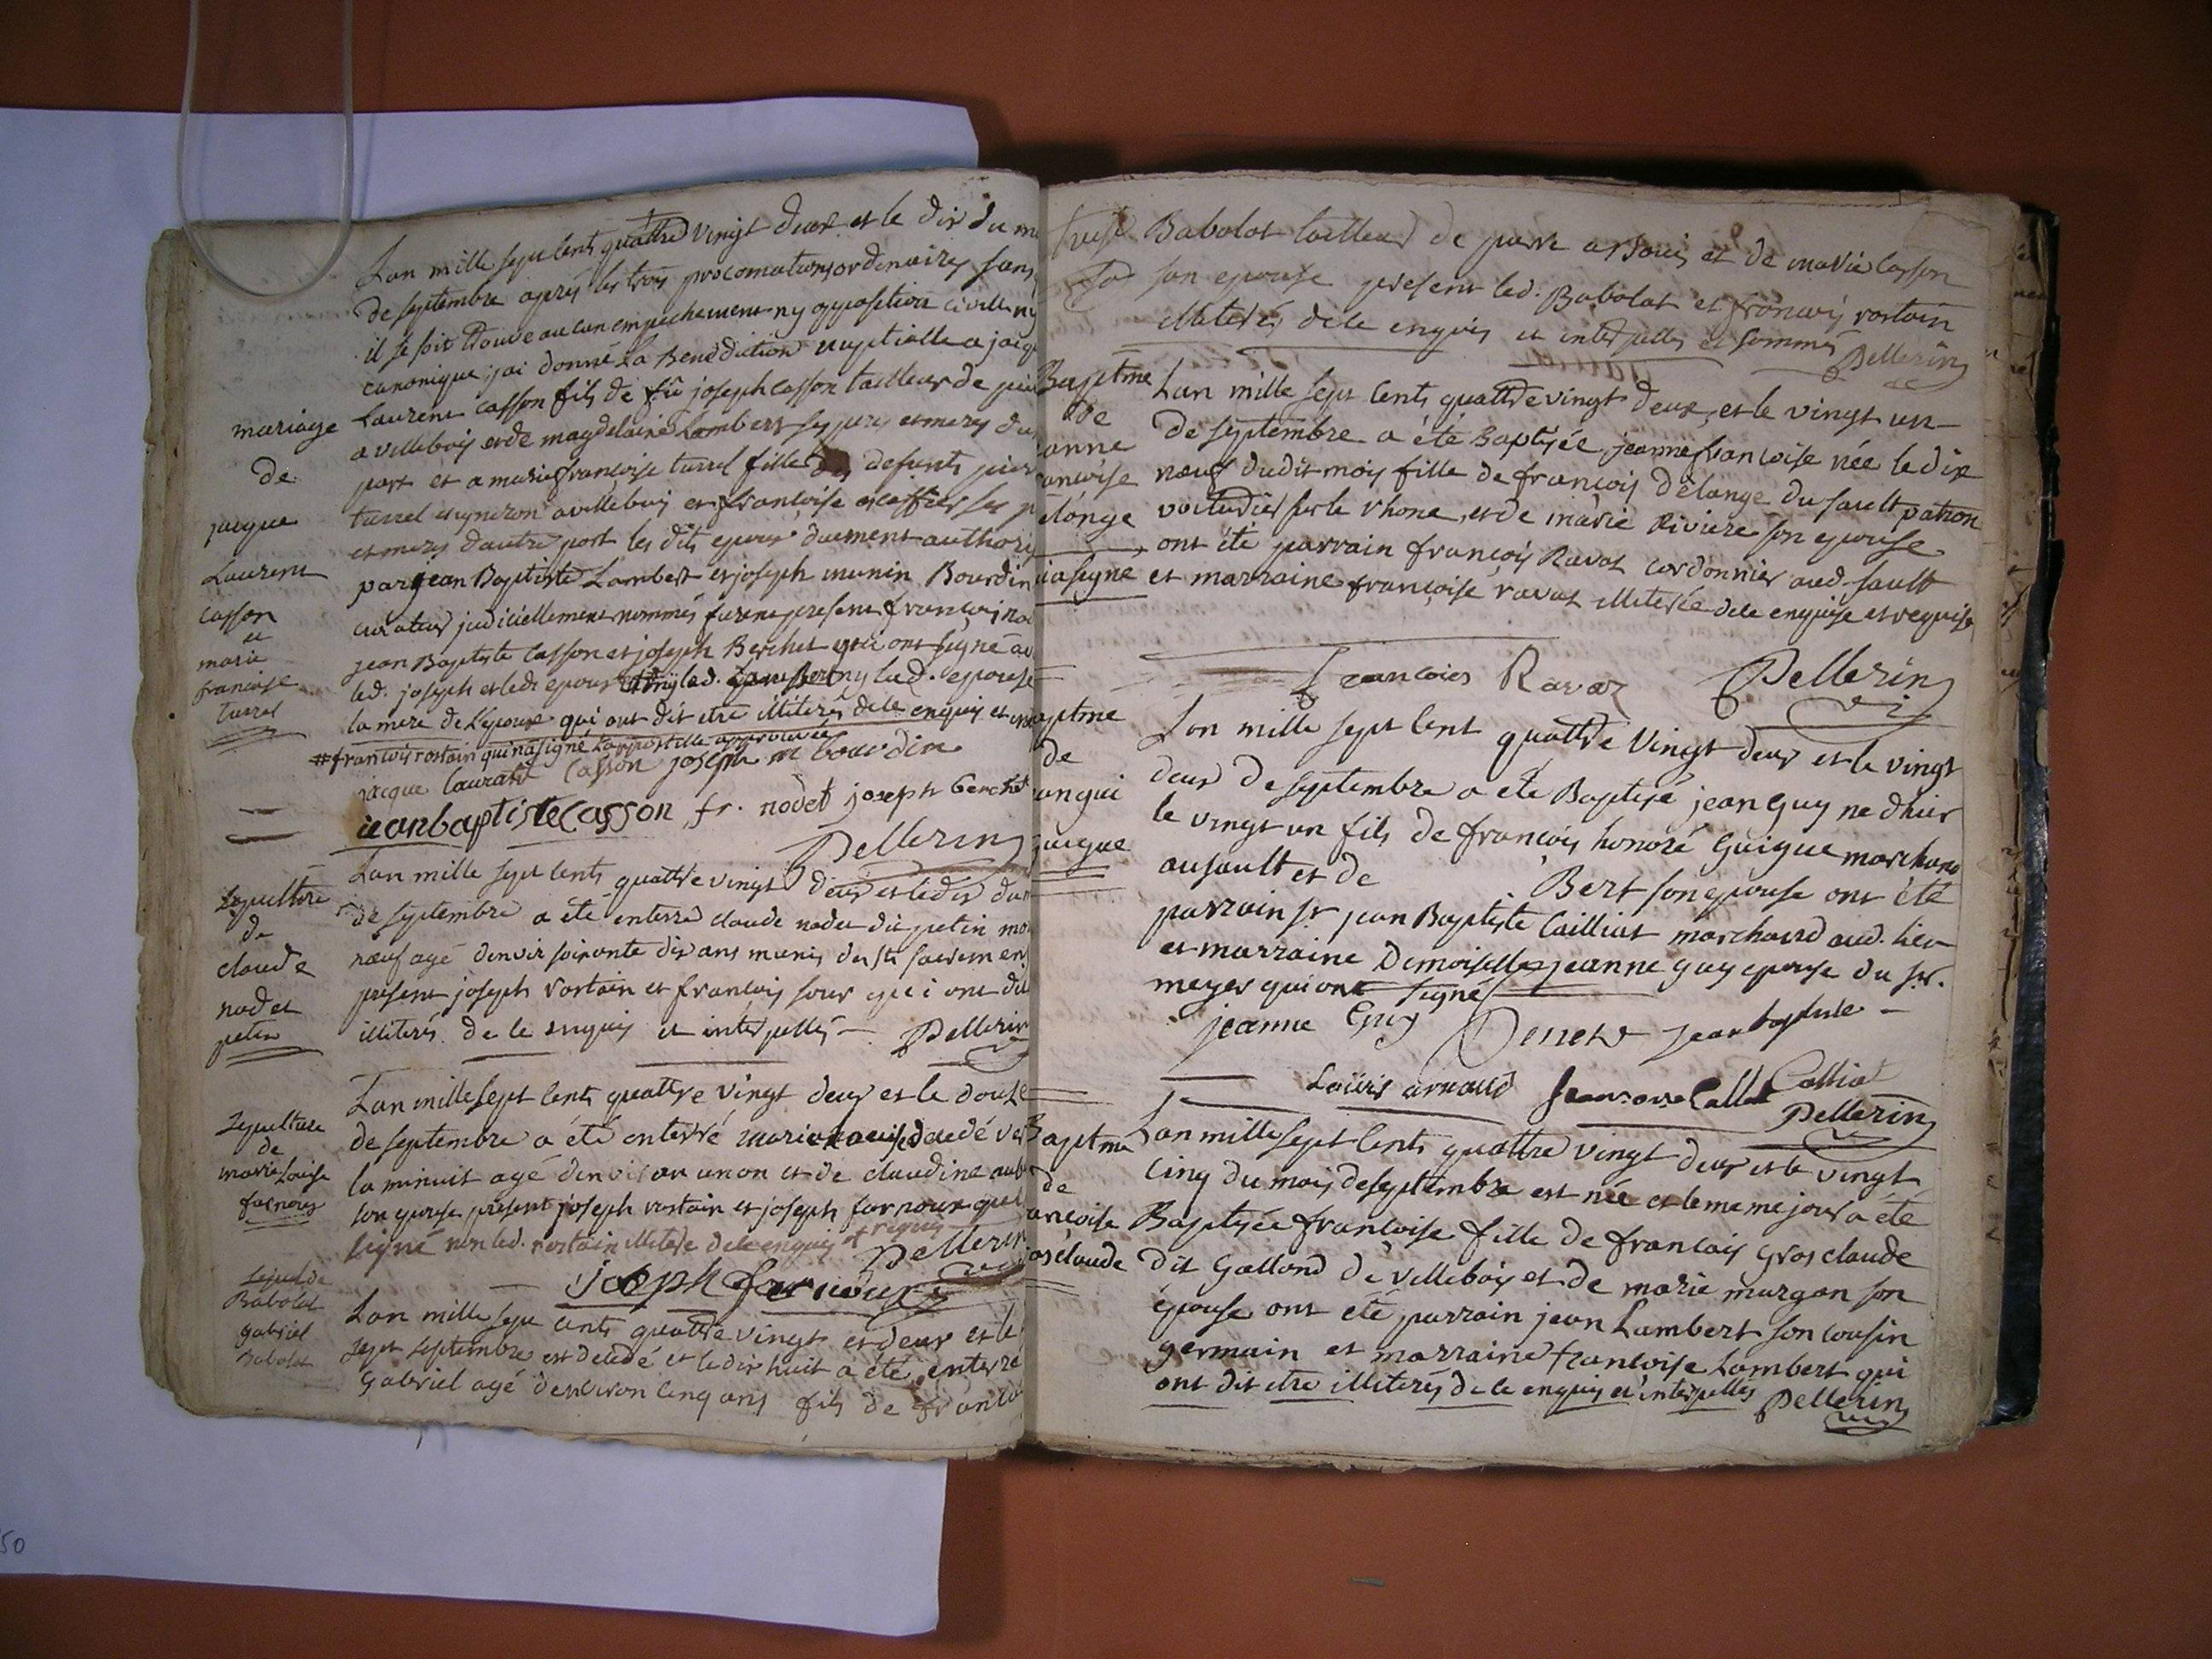 Lan mille sept cents quattre vingt deux et le dix du
de septembre après les trois proclomations ordinaires sans
il se soit trouvé aucun empechement ny opposition civille ny
canonique j'ai donné la Benediction nuptialle a
mariage
de
jacque
Laurent
casson
et
marie
francoise
turrel
Laurent casson fils de feu joseph casson tailleur de
a villebois et de magdelaine Lambert ses pere et mere
part et a marie francoise turrel fille des defunts
turrel vigneron a villebois et francoise
et mere dautre part les dits epoux duement
par jean Baptiste Lambert et joseph munin Bourdin
curateur judiciellement nommés furent present françois
jean Baptiste Casson et joseph Berchet qui ont signé
led. joseph et ledt epoux ny lad. epouse
la mere de L'epoux qui ont dit etre illiterés de ce enquis et
# francois rostain qui na signé L'apostille approuvée
jacque laurant casson joseph m bourdin
jean baptiste Casson fr. nodet joseph berchet
Pellerin
Sepulture
de
claude
nodet
petin
Lan mille sept cents quattre vingt deux et le dix
de septembre a été enterré claude nodet dit petin
neuf agé denvir soixante dix ans munis des sts sacremens
present joseph rostain et francois sour qui ont dit
illiterés de ce enquis et interpellés Pellerin
Sepulture
de
marie Louise
farnoux
Lan mille sept cents quattre vingt deux et le douze
de septembre a été enterré marie Louise decedé
la minuit agé denviron un an et de claudine
son epouse present joseph rostain et joseph farnoux qui
signé non led. rostain illiteré de ce enquis et requis
Pellerin
joseph farnoux
Babolat
gabriel
Babolat
Lan mille sept cents quattre vingt et deux et le
sept septembre est decedé et le dix huit a été enterré
Gabriel agé denviron cinq ans fils de
Babolat tailleur de pierre a et de marie casson
son epouse present led. Babolat et francois rostain
illiterés de ce enquis et interpellés et sommés
Pellerin
Baptme
de
anne
ancoise
élonge
signe
Lan mille sept cents quattre vingt deux, et le vingt un
de septembre a été Baptisée jeanne francoise née le dix
neuf dudit mois fille de francois délange du sault patron
voiturier sur le rhone, et de marie Riviere son epouse
ont été parrain francois Ravat cordonnier aud. sault
et marraine francoise ravat illiterée de ce enquise et requise
Francois Ravaz Pellerin
aptme
de
an gui
guigue
Lan mille sept cent quattre vingt deux et le vingt
deux de septembre a été Baptisé jean guy ne d'hier
le vingt un fils de francois honoré Guigue marchand
au sault et de Bert son epouse ont été
parrain sr jean Baptiste Cailliat marchand aud. lieu
et marraine Demoiselle jeanne guy epouse du sr.
meyer qui ont signé
jeanne Guy jean baptiste
Calliat
Louis arnaud
Pellerin
Baptme
de
ancoise
osclaude
Lan mille sept cents quattre vingt deux et le vingt
cinq du mois de septembre est née et le meme jour a été
Baptisée francoise fille de francois Gros claude
dit Galland de villebois et de marie murgan son
épouse ont été parrain jean Lambert son cousin
germain et marraine francoise Lambert qui
ont dit etre illiterés de ce enquis et interpellés Pellerin
50